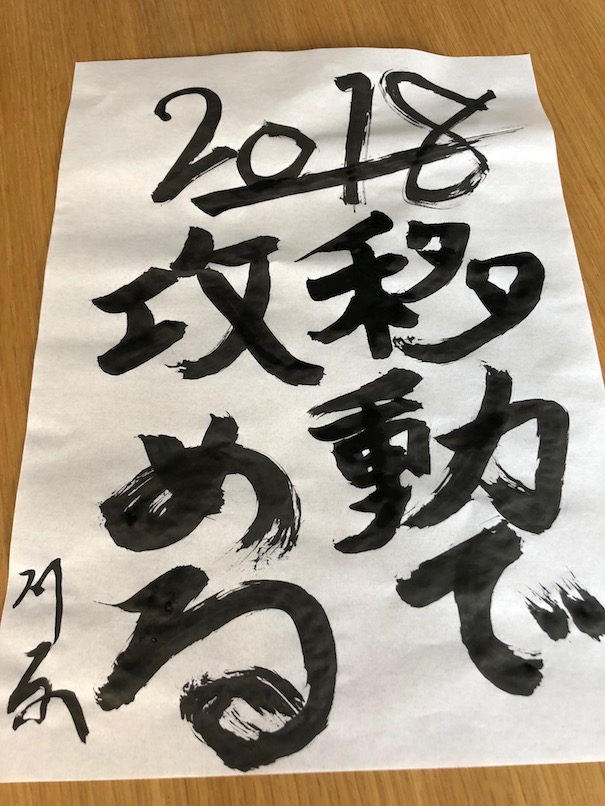 2018
移動で
攻める